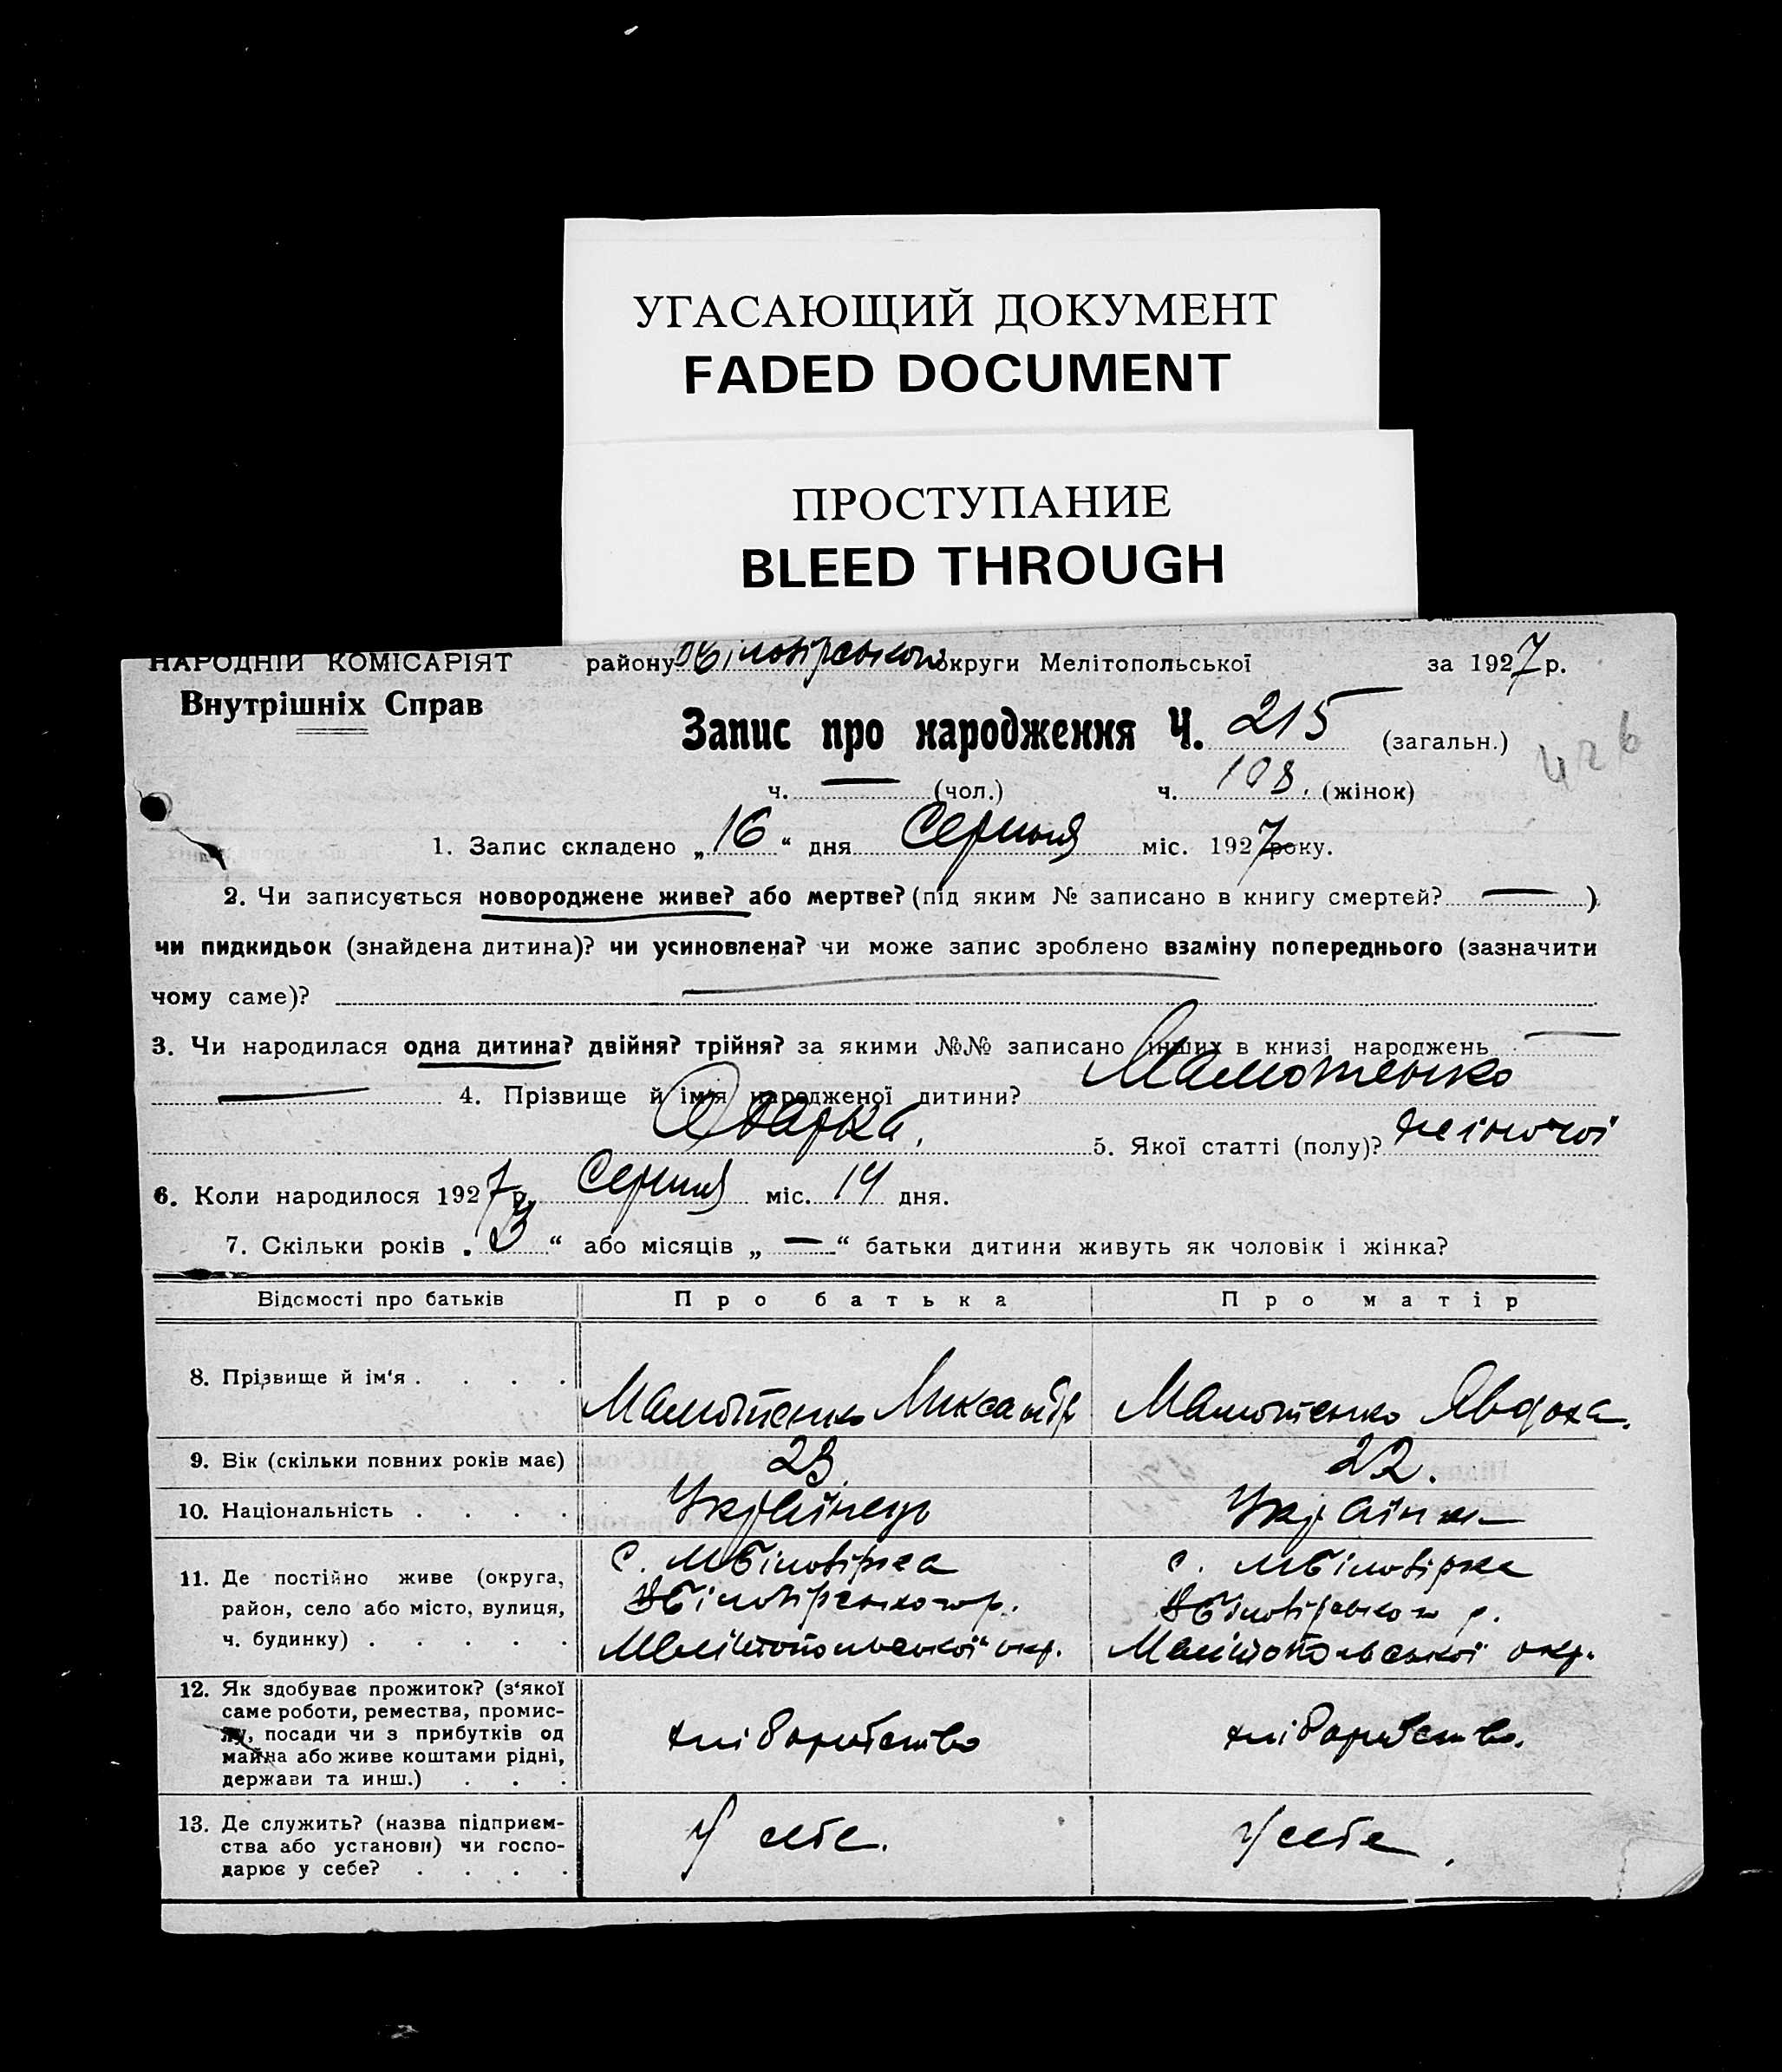 УГАСАЮЩИЙ ДОКУМЕНТ
FADED DOCUMENT
ПРОСТУПАНИЕ
BLEED THROUGH
НАРОДНІЙ КОМІСАРІЯТ району округи Мелітопольської за 1927 р.
Внутрішніх Справ
Запис про народження Ч. 215 (загальн.)
426
ч. — (чол.) ч. 108. (жінок)
1. Запис складено „16“ дня Серпня міс. 1927 року.
2. Чи записується новороджене живе? або мертве? (під яким № записано в книгу смертей? — )
чи пидкидьок (знайдена дитина)? чи усиновлена? чи може запис зроблено взаміну попереднього (зазначити
чому саме)? —
3. Чи народилася одна дитина? двійня? трійня? за якими №№ записано інших в книзі народжень —
— 4. Прізвище й ім'я народженої дитини? Мамотенко
Одарка. 5. Якої статті (полу)? жіночої
6. Коли народилося 1927 р. Серпня міс. 14 дня.
7. Скільки років „3“ або місяців „—“ батьки дитини живуть як чоловік і жінка?
Відомості про батьків Про батька Про матір
8. Прізвище й ім'я . . . . Мамотенко Миксандр Мамотенко Явдоха.
9. Вік (скільки повних років має) 23 22.
10. Національність . . . . Українець Українка
11. Де постійно живе (округа, с. МБіловірка с. МБіловірка
район, село або місто, вулиця, Біловірського р. Біловірського р.
ч. будинку) . . . . . Мелітопольської окр. Мелітопольської окр.
12. Як здобуває прожиток? (з'якої
саме роботи, ремества, промис-
лу, посади чи з прибутків од хліборобство хліборобство.
майна або живе коштами рідні,
держави та инш.) . . .
13. Де служить? (назва підприєм- У себе. У себе.
ства або установи) чи госпо-
дарює у себе? . . . .